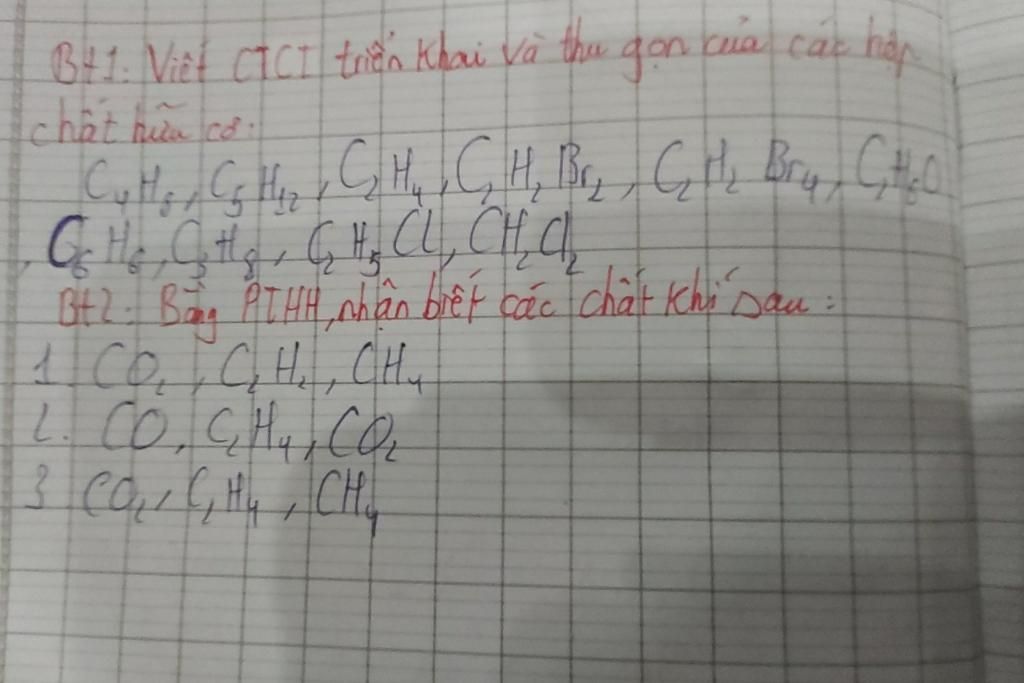 Bt1: Viết CTCT triển khai và thu gọn của các hợp
chất hữu cơ:
C₄H₈, C₅H₁₂, C₂H₄, C₂H₂Br₂, C₂H₂Br₄, C₂H₆O
, C₆H₆, C₃H₈, C₂H₅Cl, CH₂Cl₂
Bt2: Bằng PTHH, nhận biết các chất khí sau:
1 CO₂, C₂H₂, CH₄
2. CO, C₂H₄, CO₂
3 CO₂, C₂H₄, CH₄